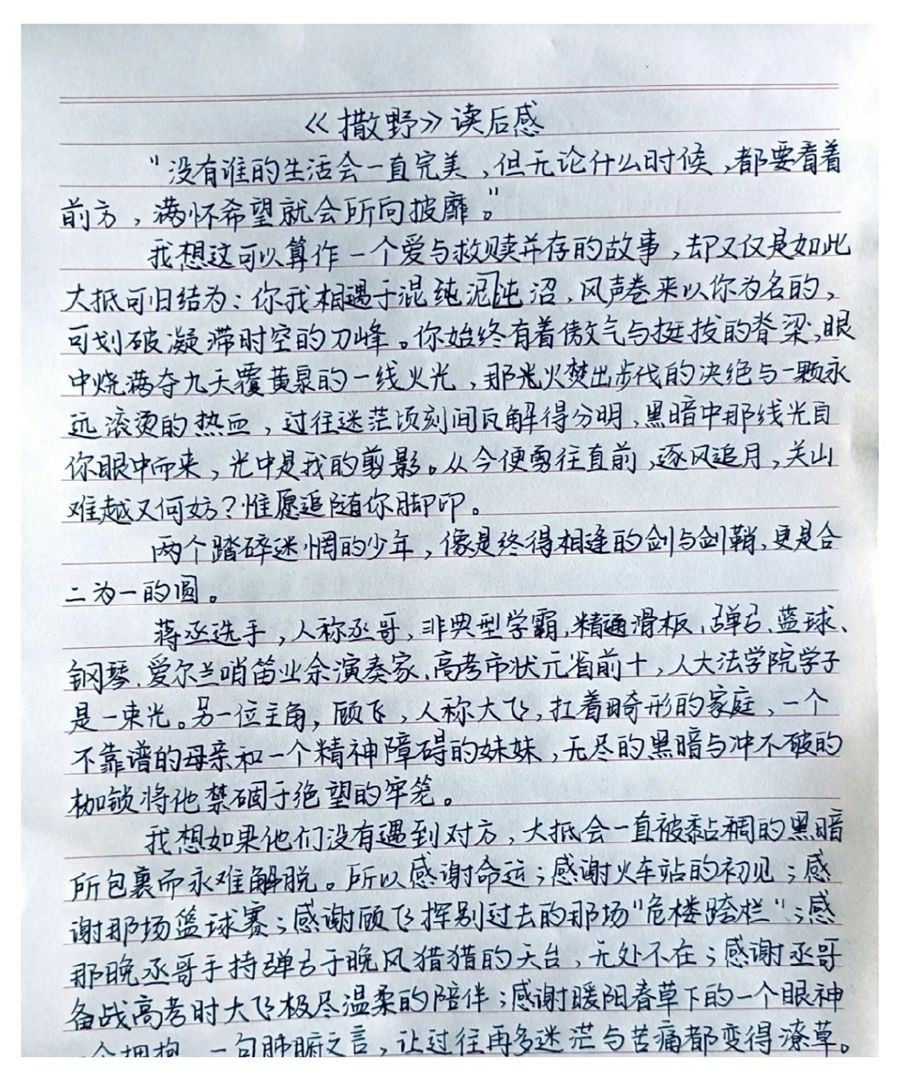 《撒野》读后感
"没有谁的生活会一直完美，但无论什么时候，都要看着
前方，满怀希望就会所向披靡。"
我想这可以算作一个爱与救赎并存的故事，却又仅是如此
大抵可归结为：你我相遇于混纯泥沌沼，风声卷来以你为名的，
可划破凝滞时空的刀峰。你始终有着傲气与挺拔的脊梁，眼
中烧满夺九天覆黄泉的一线火光，那光火焚出步伐的决绝与一颗永
远滚烫的热血，过往迷茫顷刻间瓦解得分明，黑暗中那线光自
你眼中而来，光中是我的剪影。从今便勇往直前，逐风追月，关山
难越又何妨？惟愿追随你脚印。
两个踏碎迷惘的少年，像是终得相逢的剑与剑鞘，更是合
二为一的圆。
蒋丞选手，人称丞哥，非典型学霸，精通滑板、弹弓、蓝球、
钢琴、爱尔兰哨笛业余演奏家、高考市状元省前十，人大法学院学子
是一束光。另一位主角，顾飞，人称大飞，扛着畸形的家庭，一个
不靠谱的母亲和一个精神障碍的妹妹，无尽的黑暗与冲不破的
枷锁将他禁锢于绝望的牢笼。
我想如果他们没有遇到对方，大抵会一直被黏稠的黑暗
所包裹而永难解脱。所以感谢命运；感谢火车站的初见；感
谢那场篮球赛；感谢顾飞挥别过去的那场"危楼跨栏"；感
那晚丞哥手持弹弓于晚风猎猎的天台，无处不在；感谢丞哥
备战高考时大飞极尽温柔的陪伴；感谢暖阳春草下的一个眼神
一个拥抱，一句肺腑之言，让过往再多迷茫与苦痛都变得潦草。